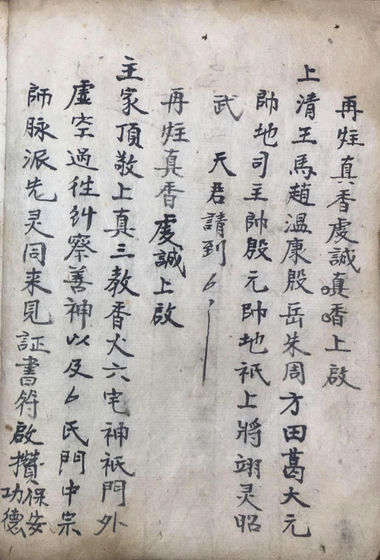 再炷真香虔誠真香上啟
上清王馬趙溫康殷岳朱周方田葛大元
帥地司主帥殷元帥地祇上將翊灵昭
武 天君請到
再炷真香虔誠上啟
主家頂敬上真三教香火六宅神祇門外
虛空過徃糾察善神以及 氏門中宗
師脉派先灵同来見証書符啟攢保安功德